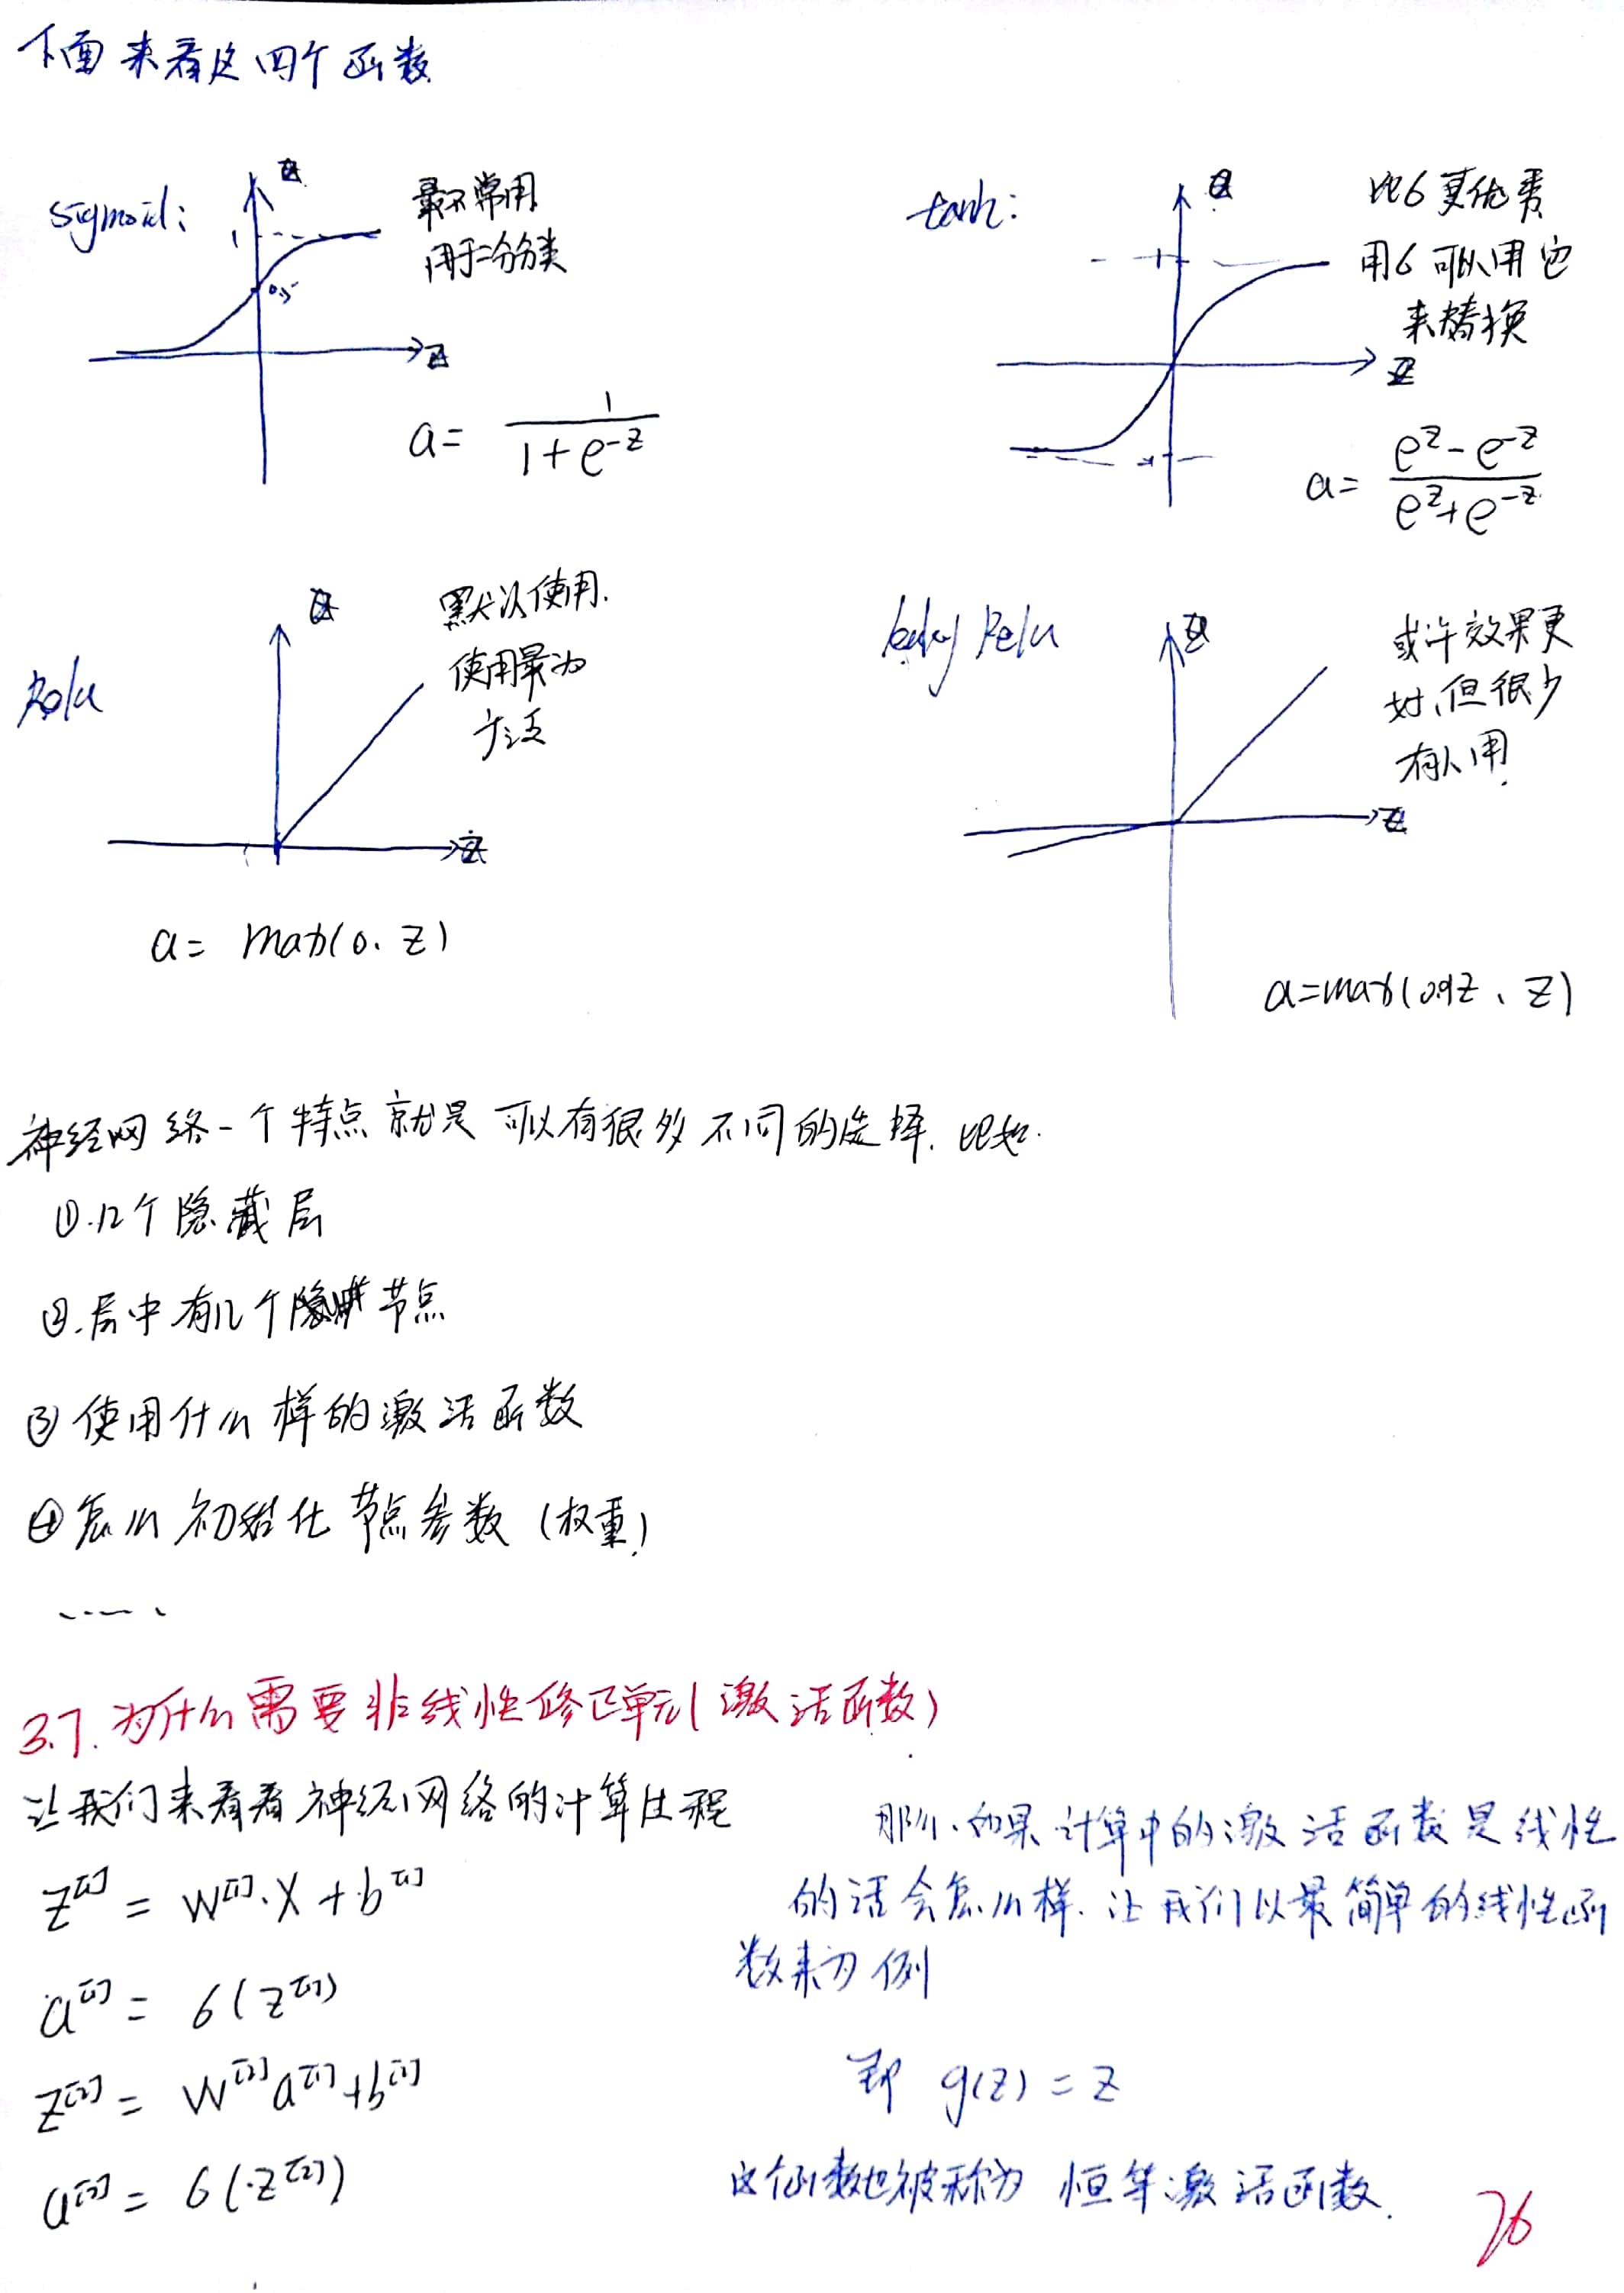 下面来看这四个函数
sigmoid:
最不常用
用于二分类
1
0.5
z
a = 1 / (1 + e^-z)
tanh:
比6更优秀
用6可以用它
来替换
z
a = (e^z - e^-z) / (e^z + e^-z)
Relu
默认使用.
使用最为
广泛
z
a = max(0, z)
leaky Relu
或许效果更
好,但很少
有人用.
z
a = max(0.01z, z)
神经网络一个特点就是可以有很多不同的选择. 比如.
①.几个隐藏层
②.层中有几个隐藏节点
③使用什么样的激活函数
④怎么初始化节点参数 (权重)
......
3.7.为什么需要非线性修正单元(激活函数)
让我们来看看神经网络的计算过程
z^[1] = W^[1]·X + b^[1]
a^[1] = 6(z^[1])
z^[2] = W^[2]a^[1]+b^[2]
a^[2] = 6(z^[2])
那么,如果计算中的激活函数是线性
的话会怎么样.让我们以最简单的线性函
数来为例
即 g(z) = z
这个函数也被称为 恒等激活函数.
26